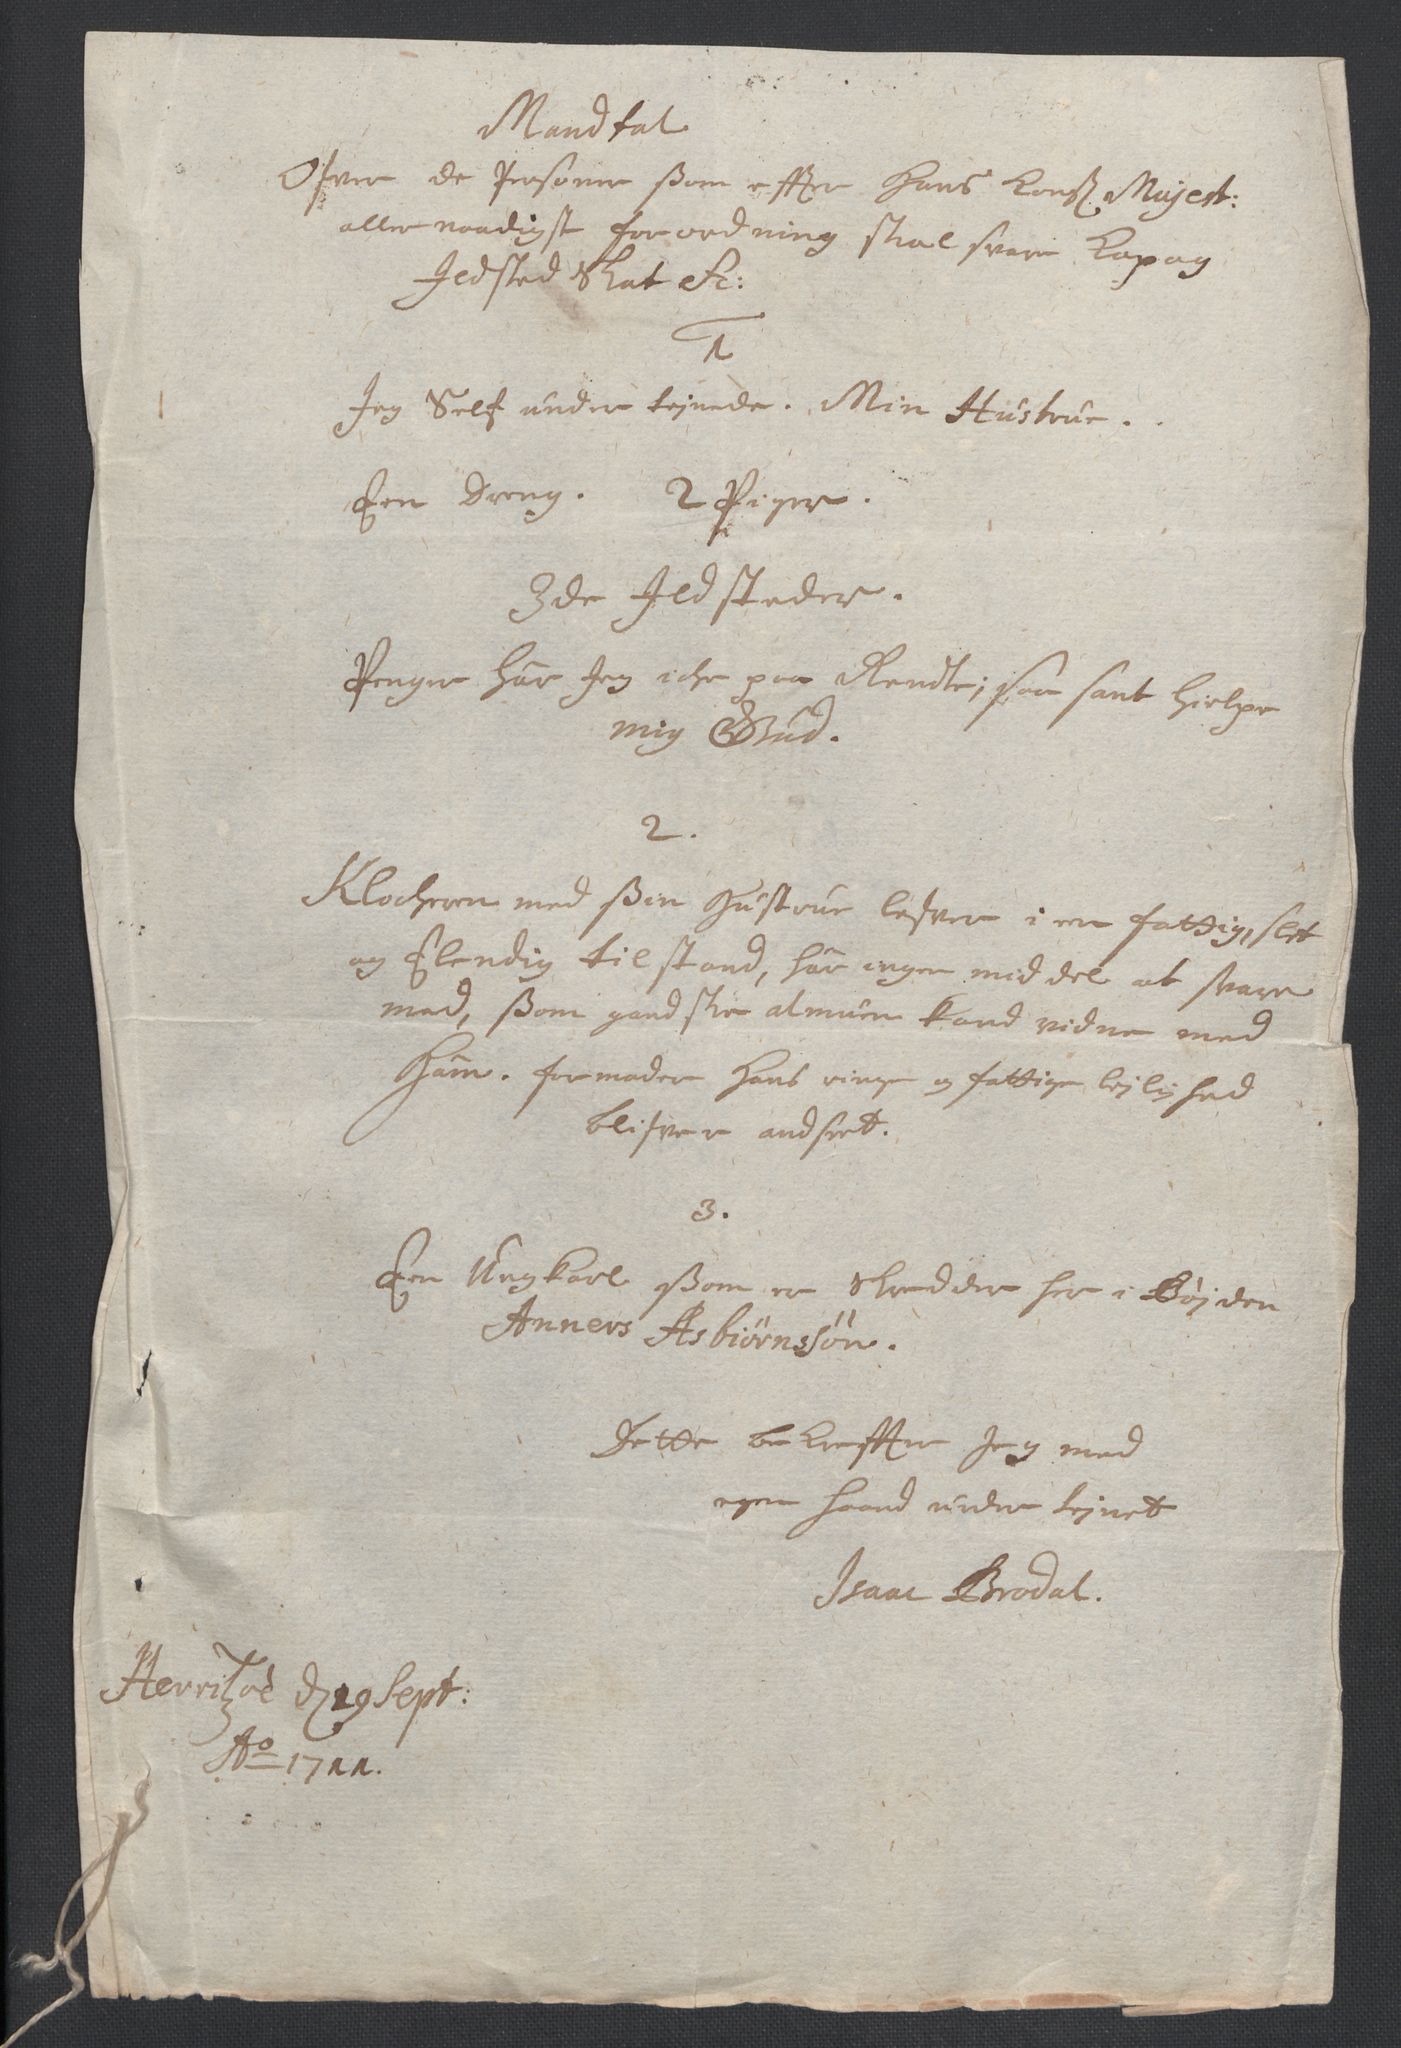 Mandtal
Ofver de Personer ßom efter Hans Kongl Majest:
allernaadigst forordning skal svare Kop og
Ildsted Skat etc:
1
Jeg Self under tejnede. Min Hustrue.
Een Dreng. 2 Piger.
3de Ildsteder.
Penger har Jeg iche paa Rendte; saa sant hielpe
mig Gud.
2.
Klocheren med ßin Hustrue lefver i en fattig, slet
og Elendig tilstand, har ingen middel at svare
med, ßom gandske almuen kand vidne med
Ham. formoder Hans ringe og fattige lejlighed
blifver andseet.
3.
Een Ungkarl ßom er Skredder her i Bøjden
Anners Asbiørnssøn.
Dette bekrefter Jeg med
egen haand under tejnet
Isaac Brodal.
Herritzøe d 29 Sept:
Ao 1711.